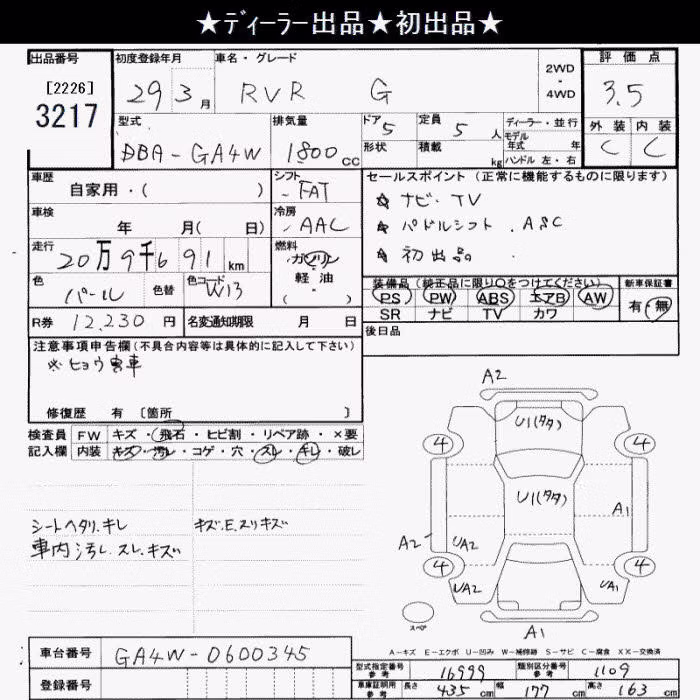 ★ディーラー出品★初出品★
出品番号 初度登録年月 車名・グレード 2WD・4WD 評価点
[2226] 3217 29 3月 RVR G 3.5
型式 排気量 ドア 5 定員 5人 ディーラー・並行 外装 内装
形状 積載 kg モデル年式 年
DBA-GA4W 1800cc ハンドル 左・右 C C
車歴 自家用・( ) シフト FAT セールスポイント(正常に機能するものに限ります)
車検 年 月( 日) 冷房 AAC ★ ナビ・TV
★ パドルシフト.ASC
走行 20万9千691km 燃料 ガソリン・軽油・( ) ★ 初出品
色 パール 色替 色コード W13 装備品(純正品に限り○をつけてください) 新車保証書
PS PW ABS エアB AW 有・無
SR ナビ TV カワ
R券 12,230円 名変通知期限 月 日 後日品
注意事項申告欄(不具合内容等は具体的に記入して下さい)
※ヒョウ害車
修復歴 有 〔箇所 〕
検査員 FW キズ・飛石・ヒビ割・リペア跡・×要
記入欄 内装 キズ・汚レ・コゲ・穴・スレ・キレ・破レ
シートヘタリ.キレ キズ.E.スリキズ
車内汚レ.スレ.キズ
A2
U1(タタ)
4 4
U1(タタ)
A1
A2 UA2
4 4
UA2 UA1
スペア
A1
A-キズ E-エクボ U-凹み W-補修跡 S-サビ C-腐食 XX-交換済
車台番号 GA4W-0600345
登録番号
型式指定番号 参考 16999 類別区分番号 参考 1109
車庫証明用 参考 長さ 435cm 幅 177cm 高さ 163cm